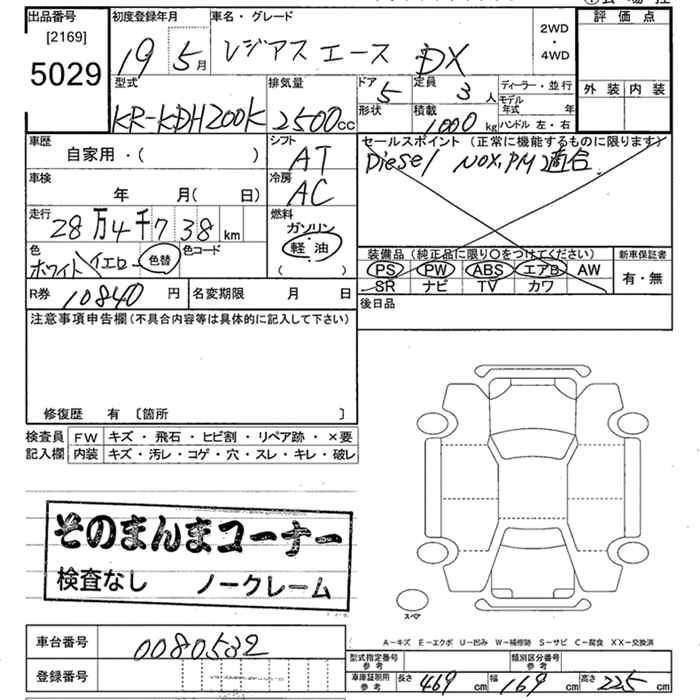 出品番号 初度登録年月 車名・グレード 評価点
[2169]
5029
19 5月 レジアスエース DX 2WD・4WD
外装 内装
型式 排気量 ドア 定員 ディーラー・並行
KR-KDH200K 2500cc 5 3人 モデル年式 年
形状 積載 1000kg ハンドル 左・右
車歴 シフト セールスポイント (正常に機能するものに限ります)
自家用・( ) AT Diesel NOX,PM適合
車検 冷房
年 月( 日) AC
走行 燃料
28万4千738km ガソリン・軽油
( )
色 色コード
ホワイト イエロー 色替
装備品 (純正品に限り○をつけてください) 新車保証書
PS PW ABS エアB AW 有・無
SR ナビ TV カワ
R券 10840円 名変期限 月 日 後日品
注意事項申告欄(不具合内容等は具体的に記入して下さい)
修復歴 有 [箇所 ]
検査員 FW キズ・飛石・ヒビ割・リペア跡・×要
記入欄 内装 キズ・汚レ・コゲ・穴・スレ・キレ・破レ
そのまんまコーナー
検査なし ノークレーム
スペア
A-キズ E-エクボ U-凹み W-補修跡 S-サビ C-腐食 XX-交換済
車台番号 0080532
型式指定番号 参考 類別区分番号 参考
登録番号
車庫証明用 参考 長さ 469cm 幅 169cm 高さ 225cm